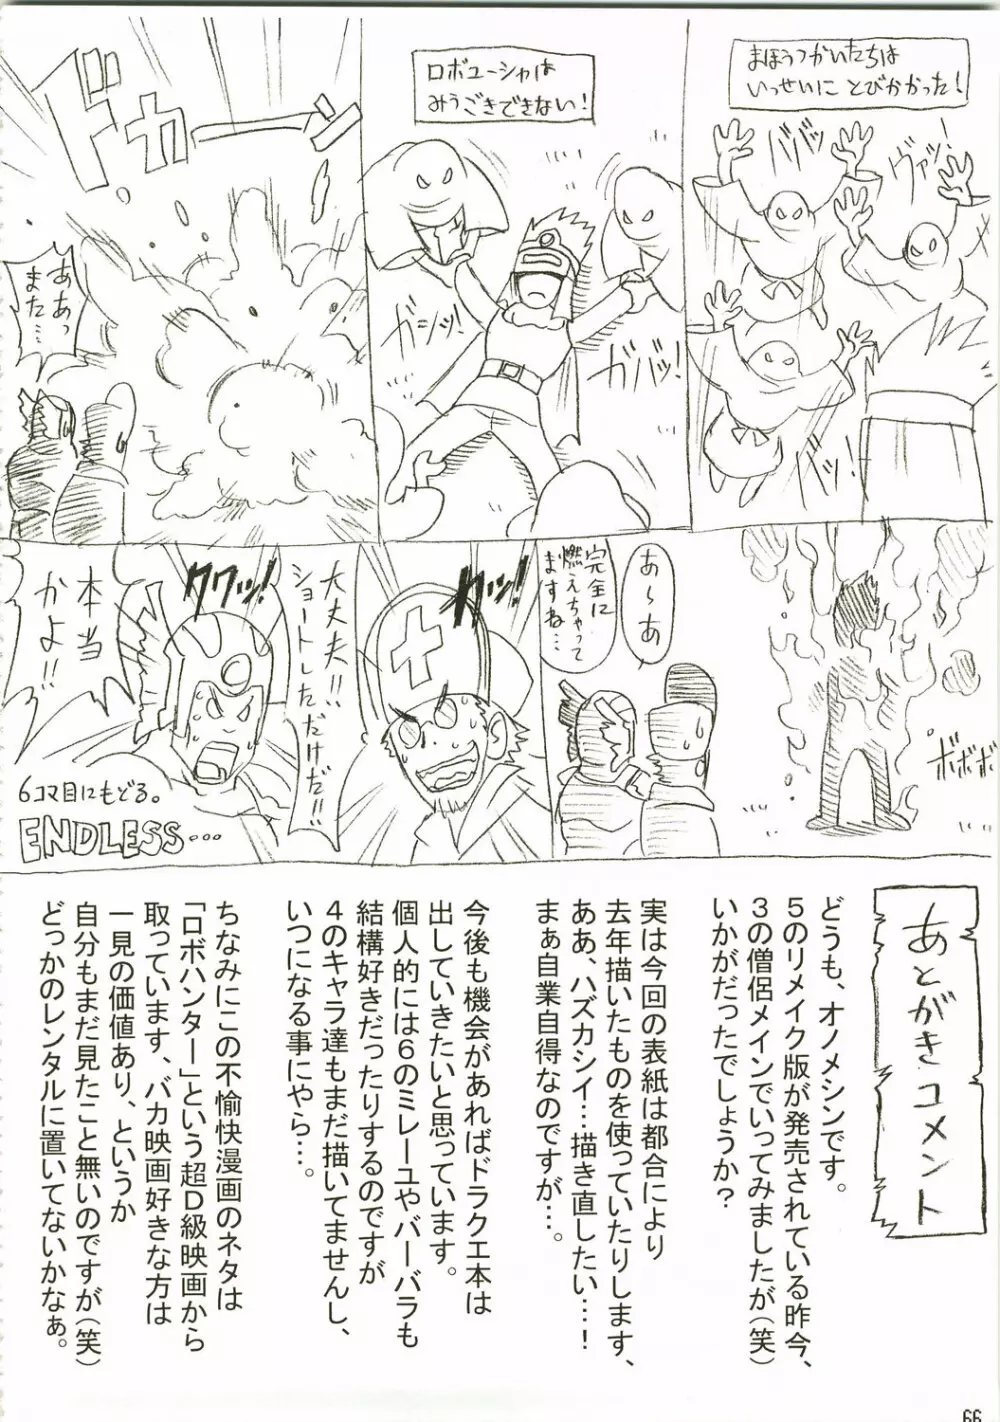 まほうつかいたちは
いっせいに とびかかった!
ババッ
ヴァッ!
バッ!
ロボユーシャは
みうごきできない!
ガシッ!
ガバッ!
ドカーン
ああっ
また…
あ〜あ
完全に
燃えちゃって
ますね…
ボボボ
クワッ!
大丈夫!!
ショートしただけだ!!
クワッ!
本当
かよ!!
6コマ目にもどる。
ENDLESS…
あとがきコメント
どうも、オノメシンです。
5のリメイク版が発売されている昨今、
3の僧侶メインでいってみましたが(笑)
いかがだったでしょうか?
実は今回の表紙は都合により
去年描いたものを使っていたりします、
ああ、ハズカシイ…描き直したい…!
まぁ自業自得なのですが…。
今後も機会があればドラクエ本は
出していきたいと思っています。
個人的には6のミレーユやバーバラも
結構好きだったりするのですが
4のキャラ達もまだ描いてませんし、
いつになる事にやら…。
ちなみにこの不愉快漫画のネタは
「ロボハンター」という超D級映画から
取っています、バカ映画好きな方は
一見の価値あり、というか
自分もまだ見たこと無いのですが(笑)
どっかのレンタルに置いてないかなぁ。
66